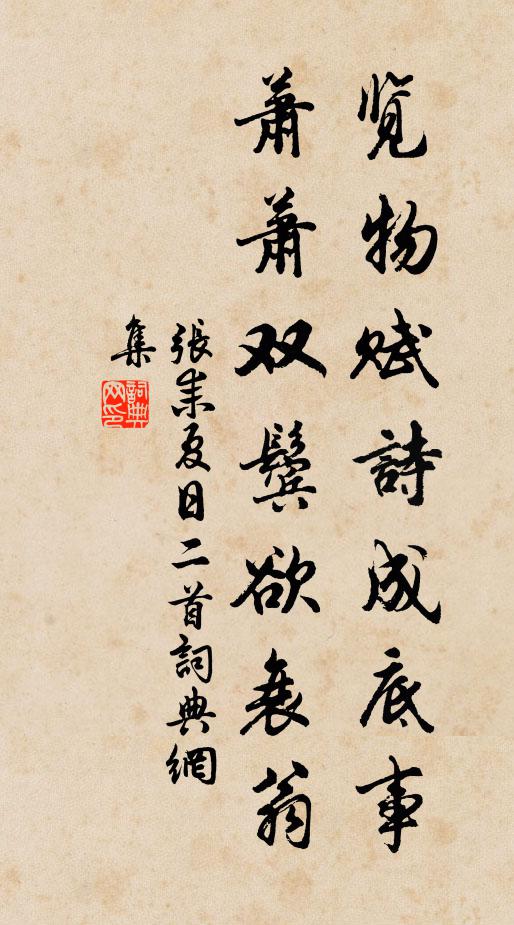 览物赋詩成底事
萧萧双鬓欲衰翁
張耒夏日二首詞典網
集
詞典
网印